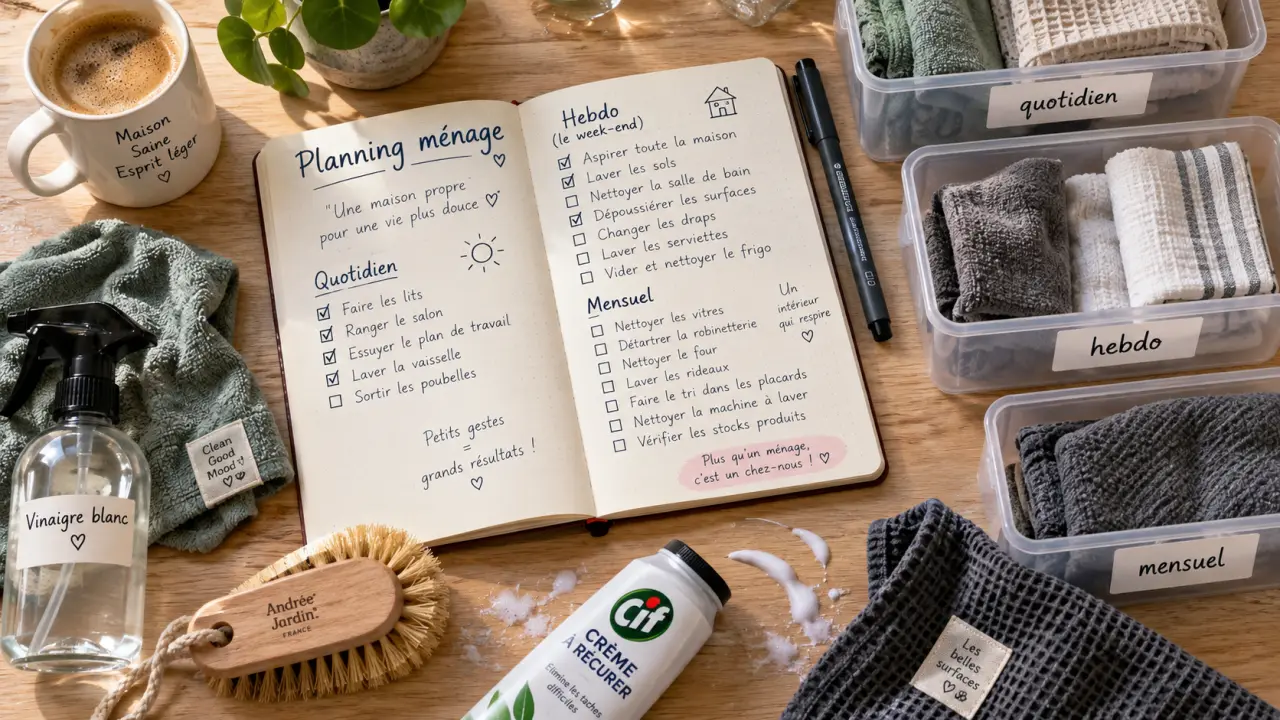 Maison
Saine
Esprit léger
♡
Planning ménage
♡
"Une maison propre
pour une vie plus douce ♡
Quotidien
☑ Faire les lits
☑ Ranger le salon
☑ Essuyer le plan de travail
☑ Laver la vaisselle
☐ Sortir les poubelles
Petits gestes
=
grands résultats !
♡
Hebdo
(le week-end)
☑ Aspirer toute la maison
☑ Laver les sols
☐ Nettoyer la salle de bain
☑ Dépoussiérer les surfaces
☐ Changer les draps
☐ Laver les serviettes
☐ Vider et nettoyer le frigo
Mensuel
☐ Nettoyer les vitres
☐ Détartrer la robinetterie
☐ Nettoyer le four
☐ Laver les rideaux
☐ Faire le tri dans les placards
☐ Nettoyer la machine à laver
☐ Vérifier les stocks produits
Un
intérieur
qui respire
♡
Plus qu'un ménage,
c'est un chez-nous ! ♡
quotidien
hebdo
mensuel
Clean
Good
Mood
Vinaigre blanc
♡
Andrée
Jardin
FRANCE
Cif
CRÈME
À RÉCURER
Elimine les taches
difficiles
Les
belles
surfaces